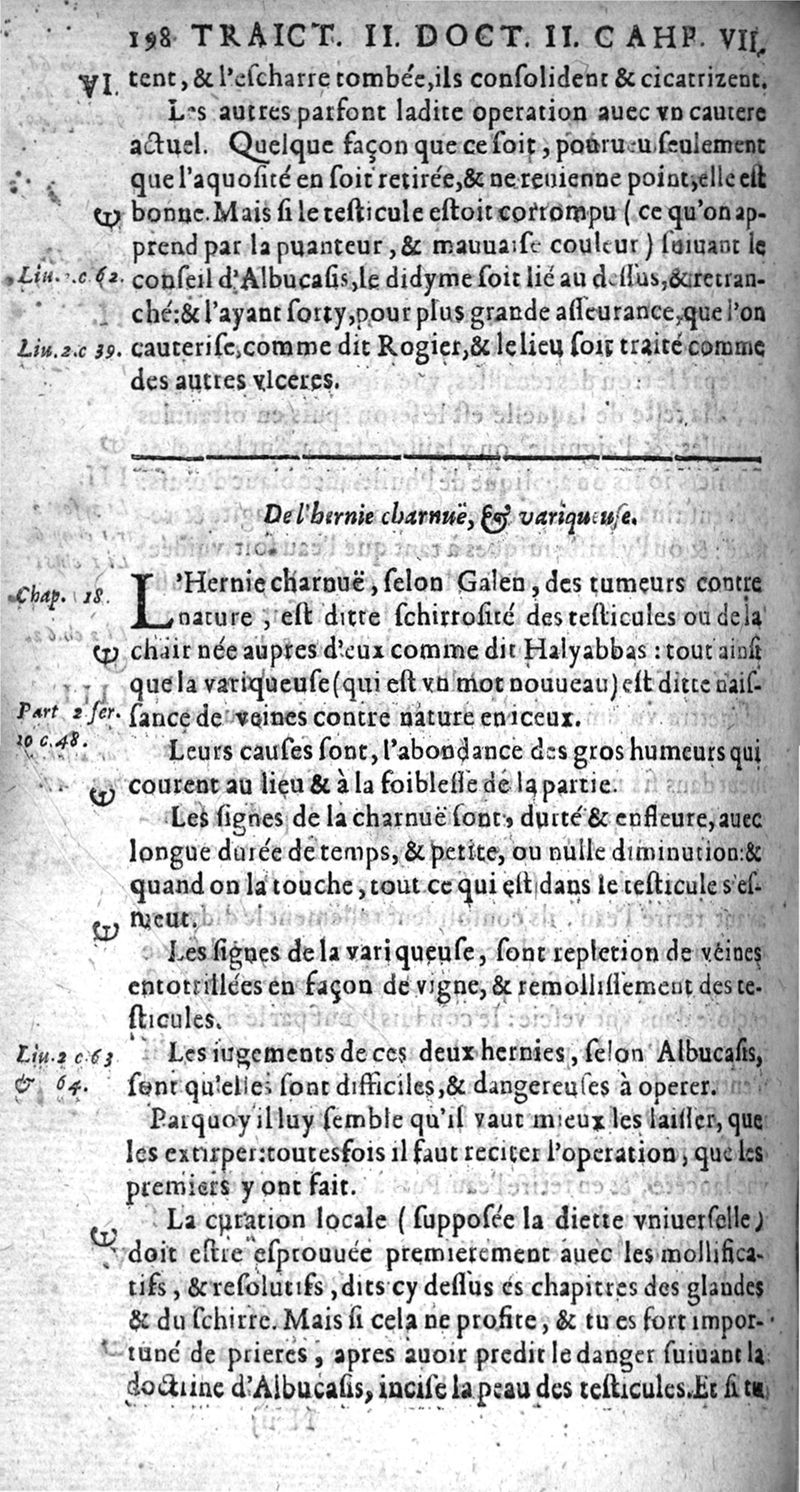 198 TRAICT. II. DOCT. II. CAHP. VII.
VI. tent, & l'eſcharre tombée, ils conſolident & cicatrizent.
Les autres parfont ladite operation auec vn cautere
actuel. Quelque façon que ce ſoit, pourueu ſeulement
que l'aquoſité en ſoit retirée, & ne reuienne point, elle eſt
bonne. Mais ſi le teſticule eſtoit corrompu (ce qu'on ap-
prend par la puanteur, & mauuaiſe couleur) ſuiuant le
Liu. .c 62. conſeil d'Albucaſis, le didyme ſoit lié au deſſus, & retran-
ché: & l'ayant ſorty, pour plus grande aſſeurance, que l'on
Liu. 2. c 39. cauteriſe, comme dit Rogier, & le lieu ſoit traité comme
des autres vlceres.
De l'hernie charnuë, & variqueuſe.
Chap. 18. L'Hernie charnuë, ſelon Galen, des tumeurs contre
nature, eſt ditte ſchirroſité des teſticules ou de la
chair née aupres d'eux comme dit Halyabbas: tout ainſi
que la variqueuſe (qui eſt vn mot nouueau) eſt ditte naiſ-
Part 2 ſer. ſance de veines contre nature en iceux.
10 c. 48. Leurs cauſes ſont, l'abondance des gros humeurs qui
courent au lieu & à la foibleſſe de la partie.
Les ſignes de la charnuë ſont, durté & enfleure, auec
longue durée de temps, & petite, ou nulle diminution: &
quand on la touche, tout ce qui eſt dans le teſticule s'eſ-
meut.
Les ſignes de la variqueuſe, ſont repletion de veines
entortillées en façon de vigne, & remolliſſement des te-
ſticules.
Liu. 2 c. 63 Les iugements de ces deux hernies, ſelon Albucaſis,
& 64. ſont qu'elles ſont difficiles, & dangereuſes à operer.
Parquoy il luy ſemble qu'il vaut mieux les laiſſer, que
les extirper: toutesfois il faut reciter l'operation, que les
premiers y ont fait.
La curation locale (ſuppoſée la diette vniuerſelle)
doit eſtre eſprouuée premierement auec les mollifica-
tifs, & reſolutifs, dits cy deſſus es chapitres des glandes
& du ſchirre. Mais ſi cela ne profite, & tu es fort impor-
tuné de prieres, apres auoir predit le danger ſuiuant la
doctrine d'Albucaſis, inciſe la peau des teſticules. Et ſi tu